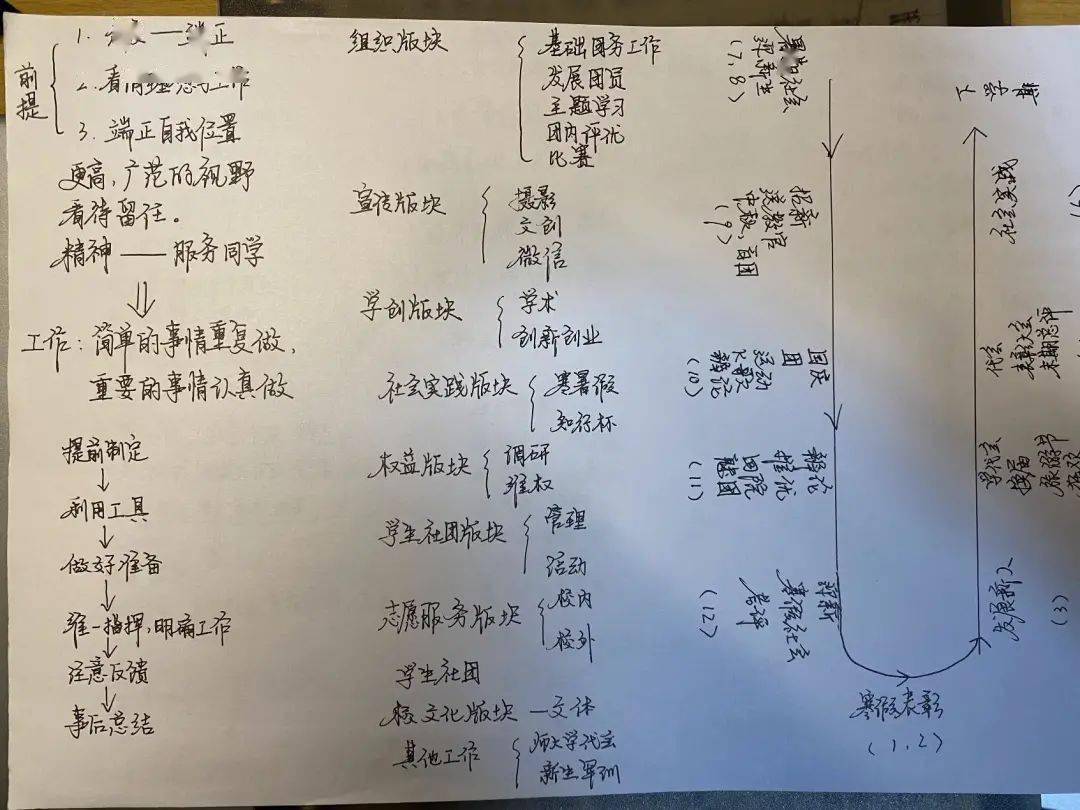 前提
1. 态度——端正
2. 看清理想与工作
3. 端正自我位置
更高,广范的视野
看待留任。
精神——服务同学
工作:简单的事情重复做,
重要的事情认真做
提前制定
利用工具
做好准备
唯一指挥,明确工作
注意反馈
事后总结
组织版块
基础团务工作
发展团员
主题学习
团内评优
比赛
宣传版块
摄影
文创
微信
学创版块
学术
创新创业
社会实践版块
寒暑假
知行杯
权益版块
调研
维权
学生社团版块
管理
活动
志愿服务版块
校内
校外
学生社团
校文化版块—文体
其他工作
师大学代会
新生军训
暑期社会
迎新生
(7,8)
招新
送教官
中秋,百团
(9)
国庆
团
运动
辩论
(10)
辩论
推优
团院
(11)
迎新
寒假社会
总评
(12)
寒假表彰
(1,2)
发展新人
(3)
学代会
换届
旅游节
代会
表彰大会
末期总评
社会实践
(6)
下学期